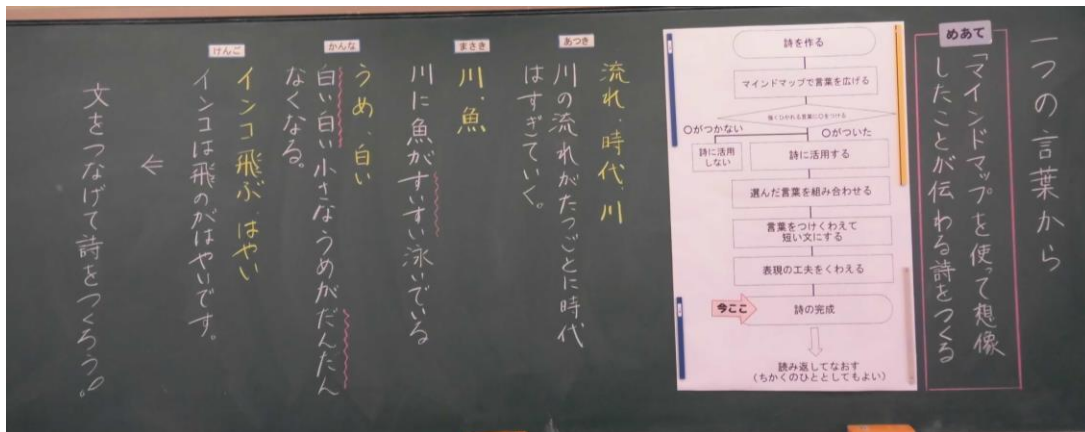 一つの言葉から
めあて
「マインドマップを使って想像
したことが伝わる詩をつくる
詩を作る
マインドマップで言葉を広げる
強くひかれる言葉に〇をつける
〇がつかない
〇がついた
詩に活用
しない
詩に活用する
選んだ言葉を組み合わせる
言葉をつけくわえて
短い文にする
表現の工夫をくわえる
今ここ
詩の完成
読み返してなおす
(ちかくのひととしてもよい)
あつき
流れ、時代、川
川の流れがたつごとに時代
はすぎていく。
まさき
川、魚
川に魚がすいすい泳いでいる
かんな
うめ、白い
白い白い小さなうめがだんだん
なくなる。
けんご
インコ飛ぶ はやい
インコは飛のがはやいです。
←
文をつなげて詩をつくろう。